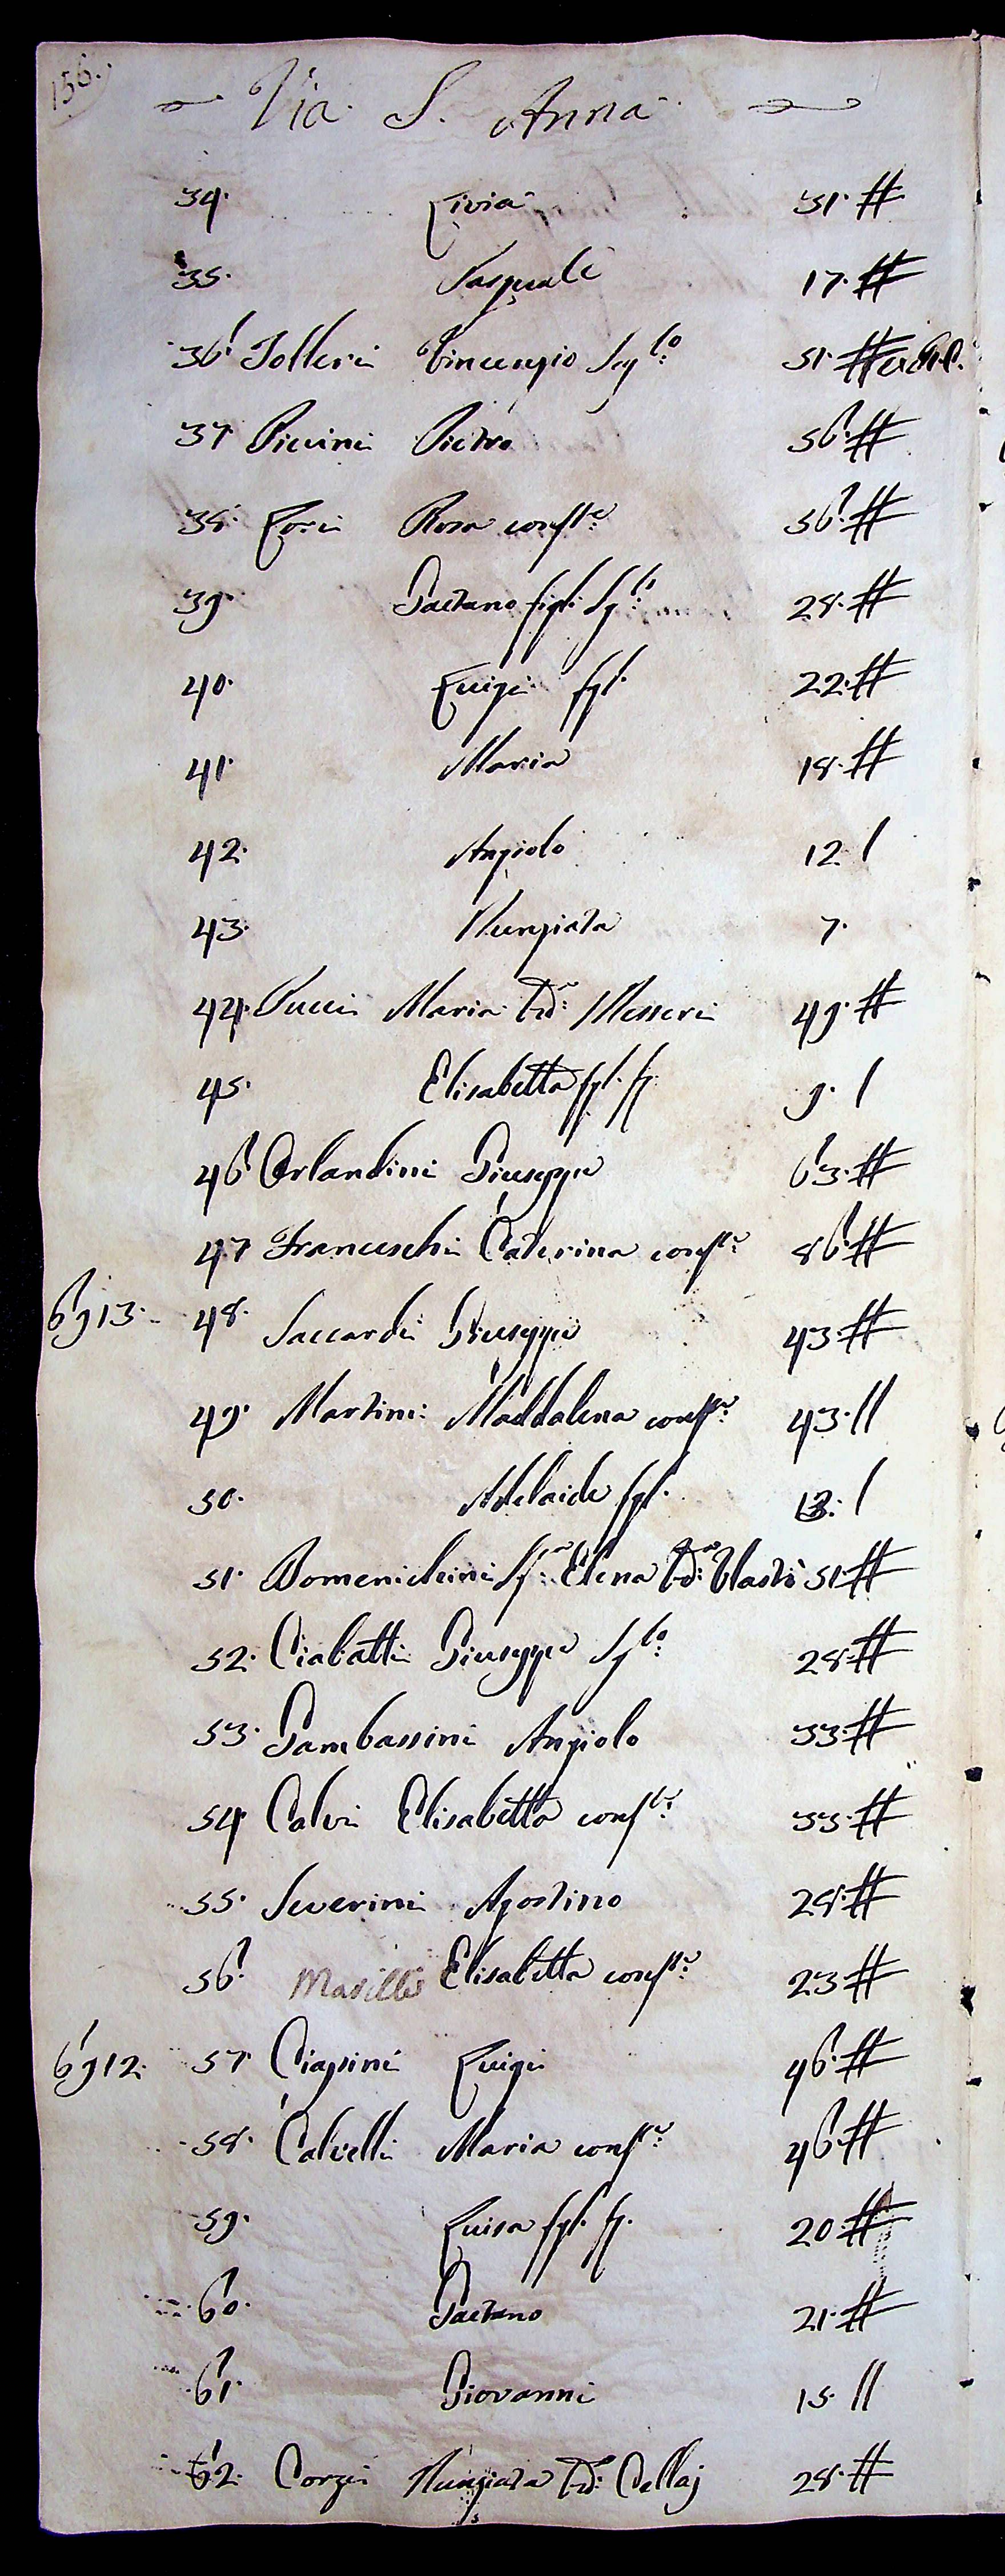 156.
Via S. Anna
34. Livia 31. #
35. Pasquale 17. #
36. Tolleri Vincenzio Sgl:o 51 #
37 Piccini Pietro 56. #
38. Lori Rosa conste: 56. #
39. Gaetano figl. 28. #
40. Luigi fgl. 22. #
41. Maria 18. #
42. Angiolo 12. /
43. Nunziata 7.
44. Pucci Maria Vda: Messeri 49. #
45. Elisabetta fgl. fg. 9. /
46 Orlandini Giuseppe 63. #
47 Franceschi Caterina conste: 86. #
6913. 48. Saccardi Giuseppe 43. #
49. Martini Maddalena conste: 43. //
50. Adelaide fgl. 13. /
51. Domenichini Elena Vda: 51. #
52. Ciabatti Giuseppe Sgl:o 28. #
53. Gambassini Angiolo 33. #
54 Calvi Elisabetta conste: 33. #
55. Severini Agostino 28. #
56. Masilli Elisabetta conste: 23. #
6912. 57. Ciapini Luigi 46. #
58. Calvelli Maria conste: 46. #
59. Luisa fgl. fg. 20. #
60. Gaetano 21. #
61. Giovanni 15. //
62. Corzi Nunziata Vda: Cellaj 28. #